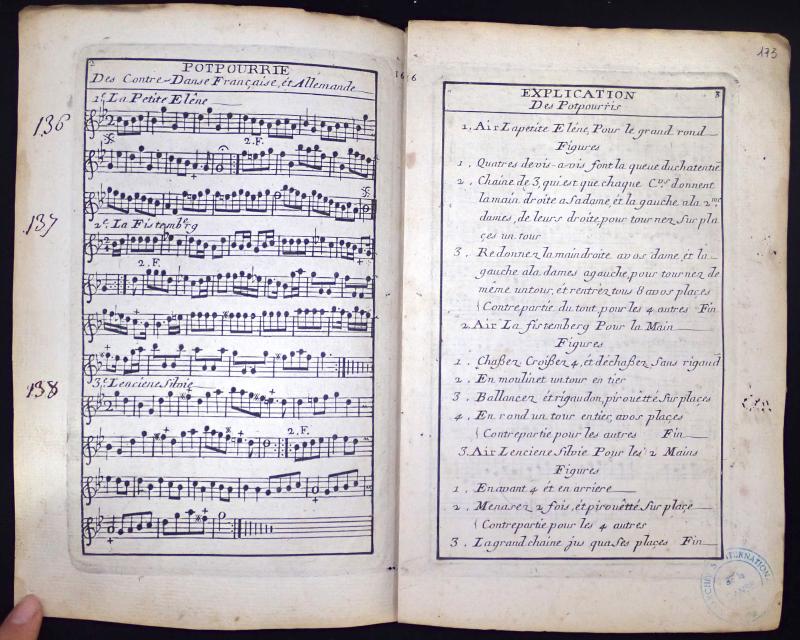 2
POTPOURRIE
Des Contre-Danse Française, ét Allemande
1.e La Petite Eléne
136
2.F.
137
2.e La Fistemberg
2.F.
138
3.e Lenciene Silvie
2.F.
173
EXPLICATION
3
Des Potpourris
1. Air Lapetite Eléne, Pour le grand rond
Figures
1. Quatres devis-a-vis font la queue duchatentié
2. Chaine de 3, qui est que chaque C.rs donnent
lamain droite a sadame, ét la gauche ala 2.me
dames, de leurs droite, pour tournez Sur pla
çes un tour
3. Redonnez lamaindroite avos dame, ét la
gauche ala dames agauche, pour tournez de
même untour, ét rentrez tous 8 avos plaçes
Contrepartie du tout, pour les 4 autres Fin
2. Air La fistemberg Pour la Main
Figures
1. Chaßez Croißez 4, ét déchaßez Sans rigaud
2. En moulinet un tour en tier
3. Ballancez ét rigaudon, pirouétté Sur plaçes
4. En rond un tour entier, avos plaçes
Contrepartie pour les autres Fin
3. Air Lenciene Silvie Pour les 2 Mains
Figures
1. En avant 4 ét en arriere
2. Menasez 2 fois, ét pirouêtté Sur plaçe
Contrepartie pour les 4 autres
3. Lagrand chaine jus qua Ses plaçes Fin